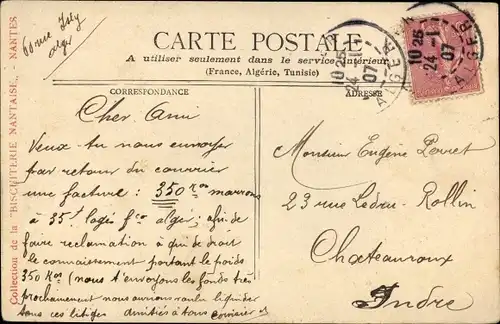 60 rue Isly
Alger
CARTE POSTALE
A utiliser seulement dans le service intérieur
(France, Algérie, Tunisie)
CORRESPONDANCE
ADRESSE
Collection de la "BISCUITERIE NANTAISE", - NANTES
ALGER
10 25
24 - 1
07
ALGER
10 25
24 - 1
07
Cher Ami
Veux tu nous envoyer
par retour du courrier
une facture : 350 kos marrons
à 35f logés fco alger ; afin de
faire reclamation à qui de droit
le connaissement portant le poids
350 Kos (nous t'envoyons les fonds très
prochainement nous aurions voulu liquider
tous ces litiges amitiés à tous
Monsieur Eugène
23 rue Ledru-Rollin
Chateauroux
Indre